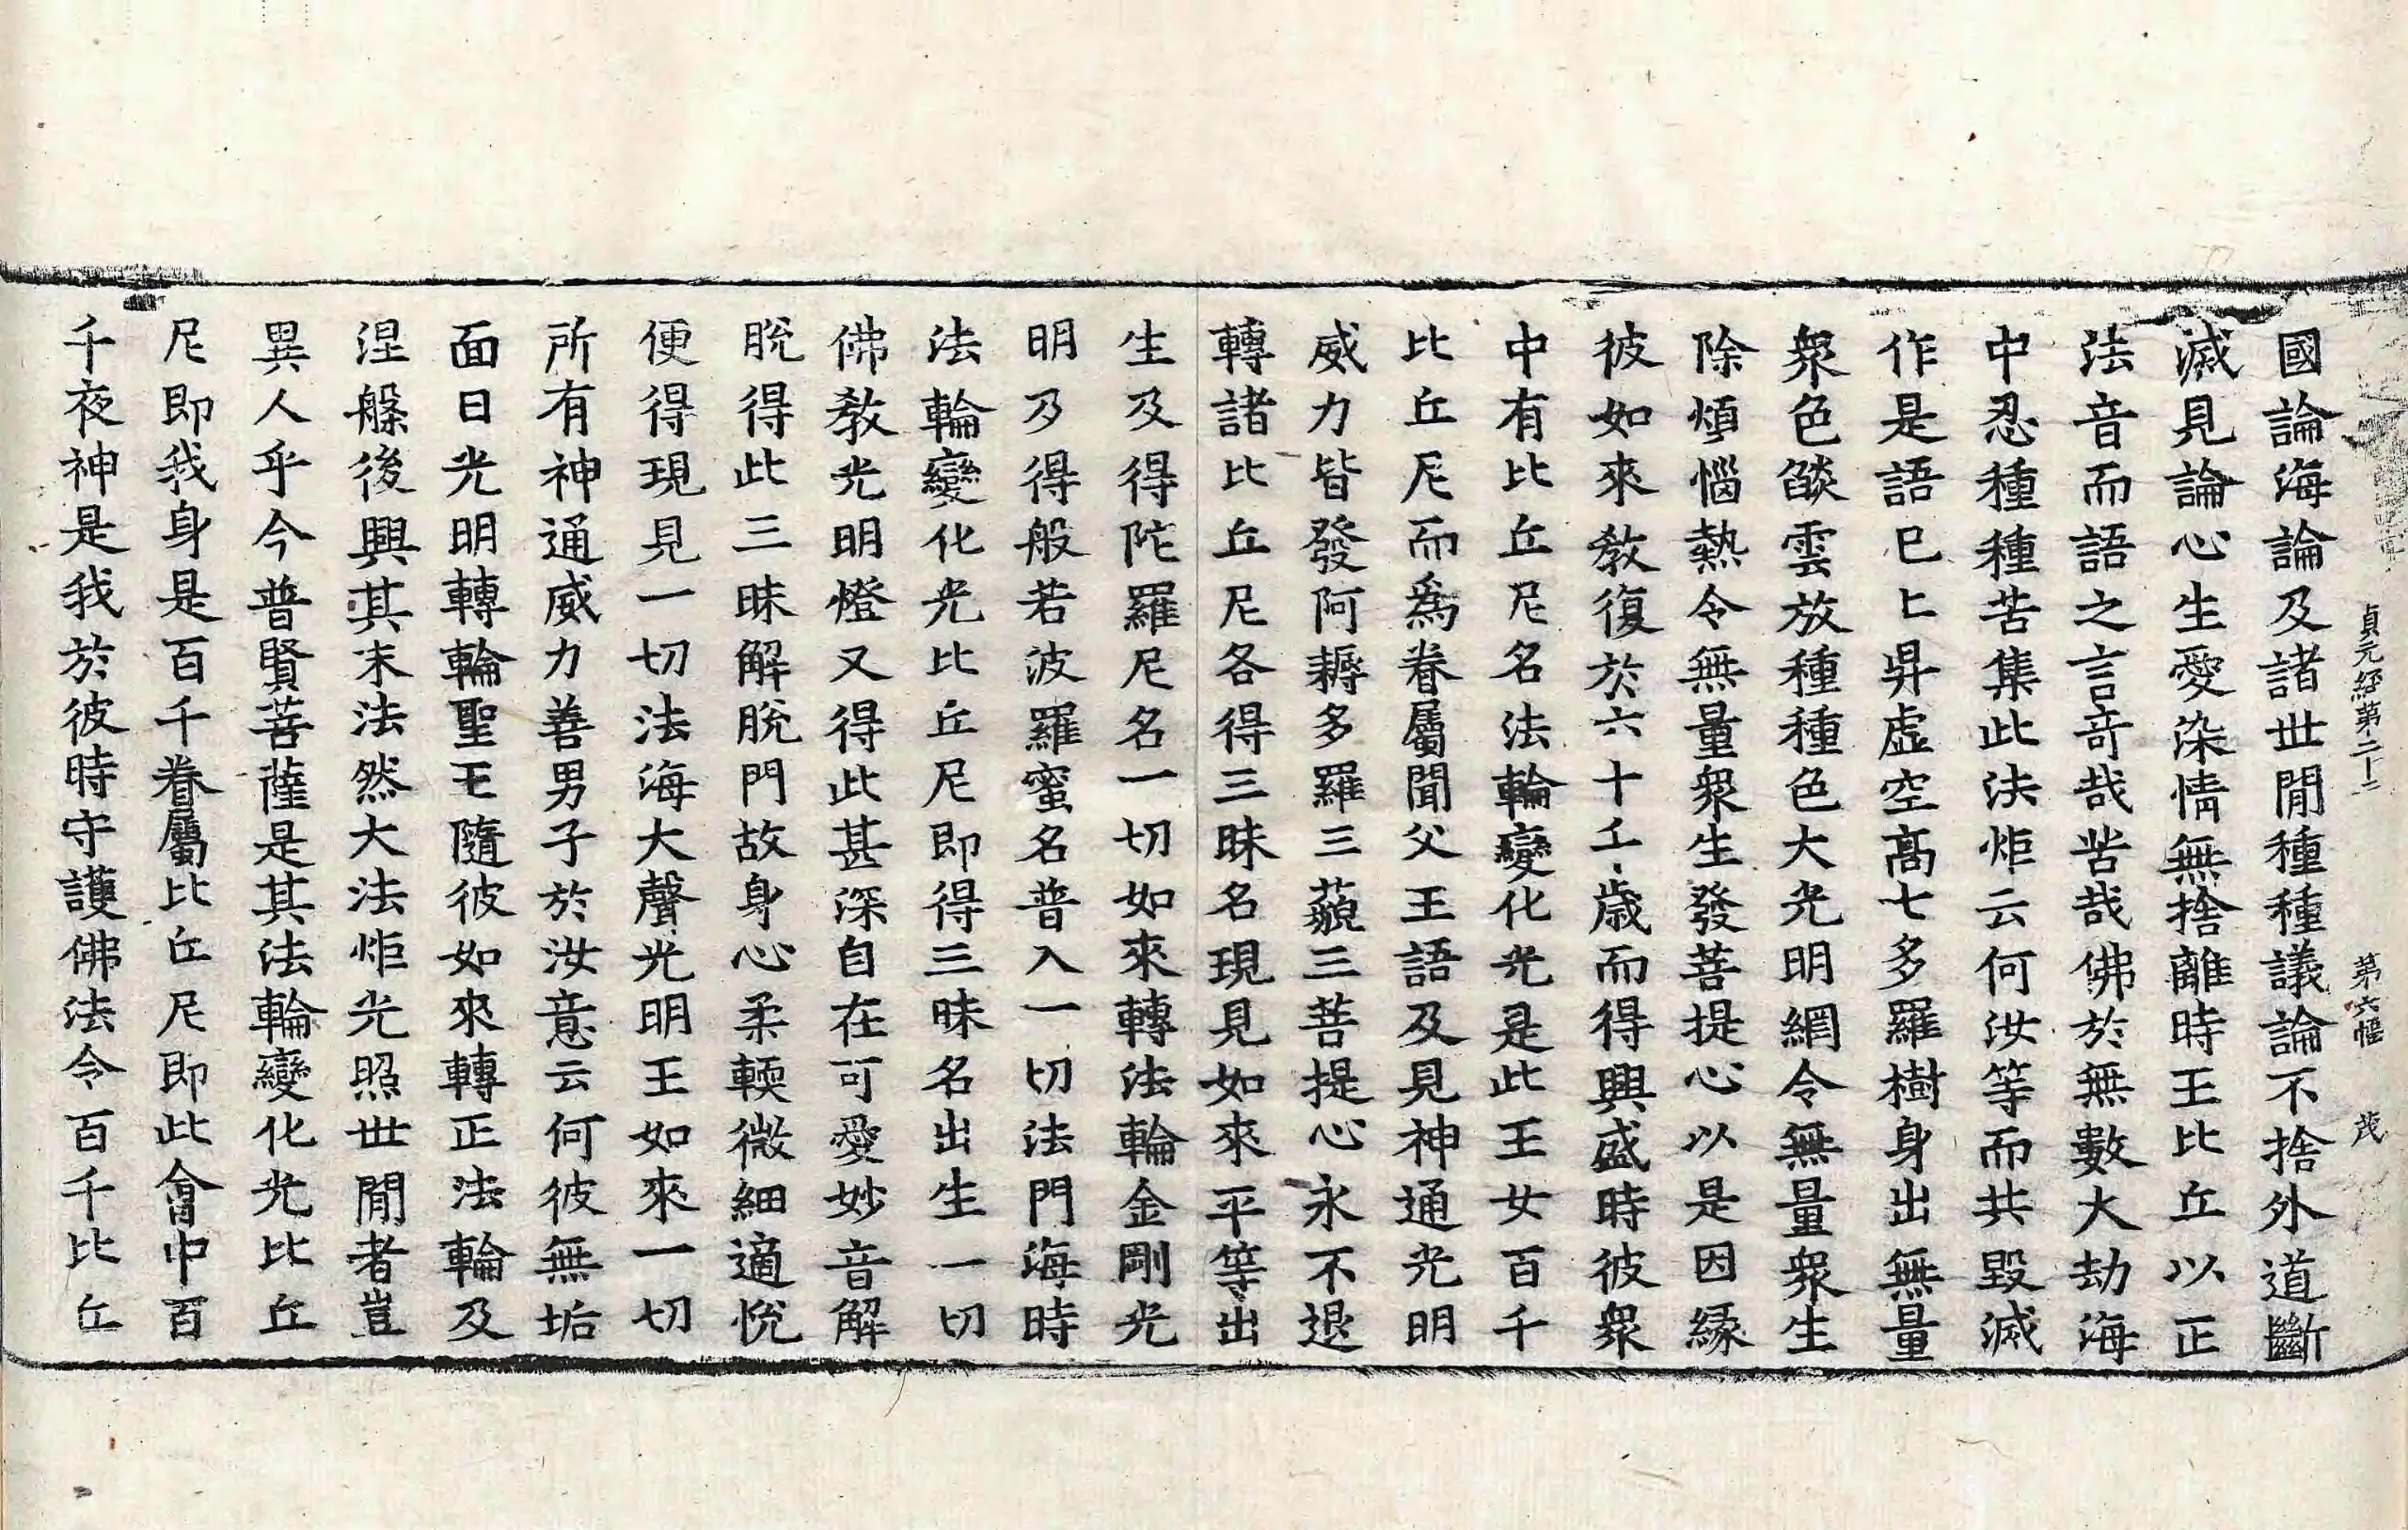 貞元經第二十二 第六幅 茂
國論海論及諸世閒種種議論不捨外道斷
滅見論心生愛染情無捨離時王比丘以正
法音而語之言奇哉苦哉佛於無數大劫海
中忍種種苦集此法炬云何汝等而共毀滅
作是語已上昇虛空高七多羅樹身出無量
衆色燄雲放種種色大光明網令無量衆生
除煩惱熱令無量衆生發菩提心以是因緣
彼如來教復於六十千歲而得興盛時彼衆
中有比丘尼名法輪變化光是此王女百千
比丘尼而爲眷屬聞父王語及見神通光明
威力皆發阿耨多羅三藐三菩提心永不退
轉諸比丘尼各得三昧名現見如來平等出
生及得陀羅尼名一切如來轉法輪金剛光
明乃得般若波羅蜜名普入一切法門海時
法輪變化光比丘尼即得三昧名出生一切
佛教光明燈又得此甚深自在可愛妙音解
脫得此三昧解脫門故身心柔輭微細適悅
便得現見一切法海大聲光明王如來一切
所有神通威力善男子於汝意云何彼無垢
面日光明轉輪聖王隨彼如來轉正法輪及
涅槃後興其末法然大法炬光照世閒者豈
異人乎今普賢菩薩是其法輪變化光比丘
尼即我身是百千眷屬比丘尼即此會中百
千夜神是我於彼時守護佛法令百千比丘